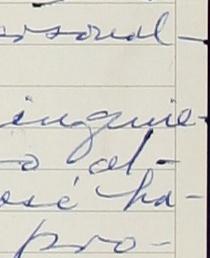 ersonal-
inquie-
o al-
osé ha-
pro-